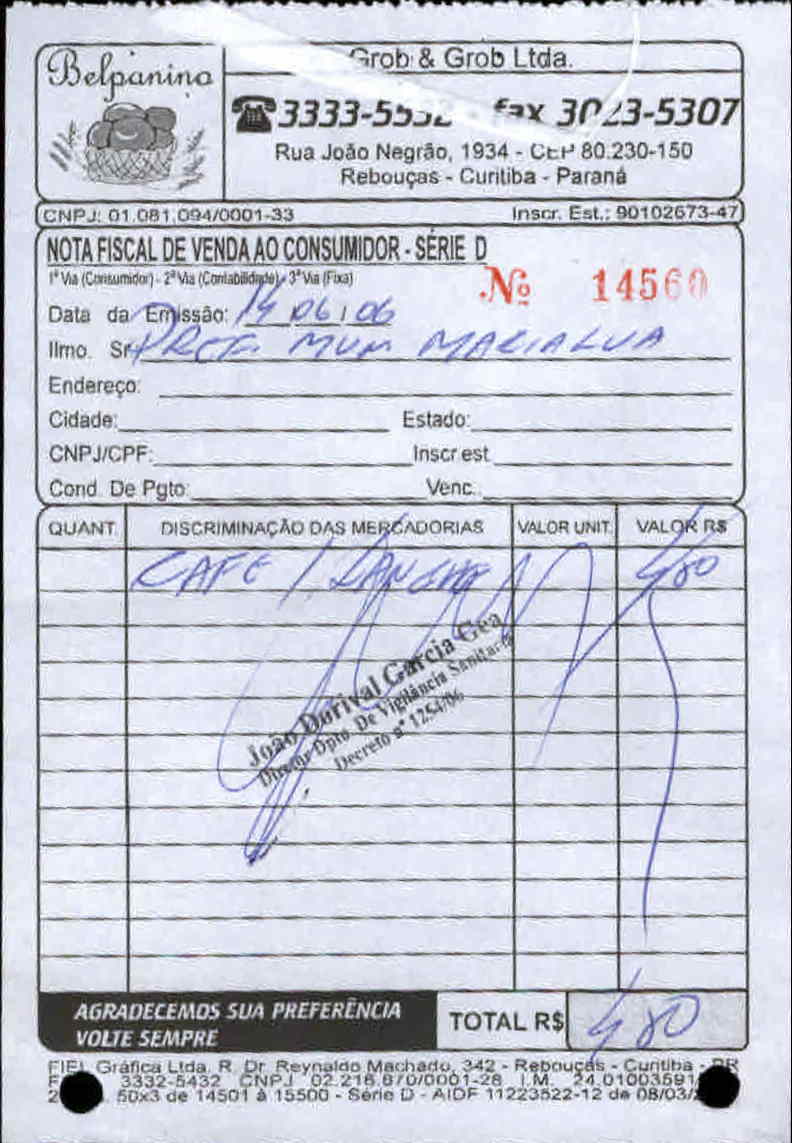 Belpanino
Grob & Grob Ltda.
3333-5532 - fax 3023-5307
Rua João Negrão, 1934 - CEP 80.230-150
Rebouças - Curitiba - Paraná
CNPJ: 01.081.094/0001-33 Inscr. Est.: 90102673-47
NOTA FISCAL DE VENDA AO CONSUMIDOR - SÉRIE D
1ª Via (Consumidor) - 2ª Via (Contabilidade) - 3ª Via (Fixa)
Nº 14560
Data da Emissão: 14 06 / 06
Ilmo. Sr. PREF. MUN MARIALVA
Endereço:
Cidade: Estado:
CNPJ/CPF: Inscr est.
Cond. De Pgto: Venc.:
QUANT. DISCRIMINAÇÃO DAS MERCADORIAS VALOR UNIT. VALOR R$
CAFE / LANCHE 4,80
João Dorival Garcia Gea
Diretor Dpto. De Vigilância Sanitária
Decreto nº 1254/06
AGRADECEMOS SUA PREFERÊNCIA
VOLTE SEMPRE
TOTAL R$ 4,80
FIEL Gráfica Ltda. R. Dr. Reynaldo Machado, 342 - Rebouças - Curitiba - PR
3332-5432 CNPJ 02.216.670/0001-28 I.M. 24.01003591
50x3 de 14501 à 15500 - Série D - AIDF 11223522-12 de 08/03/